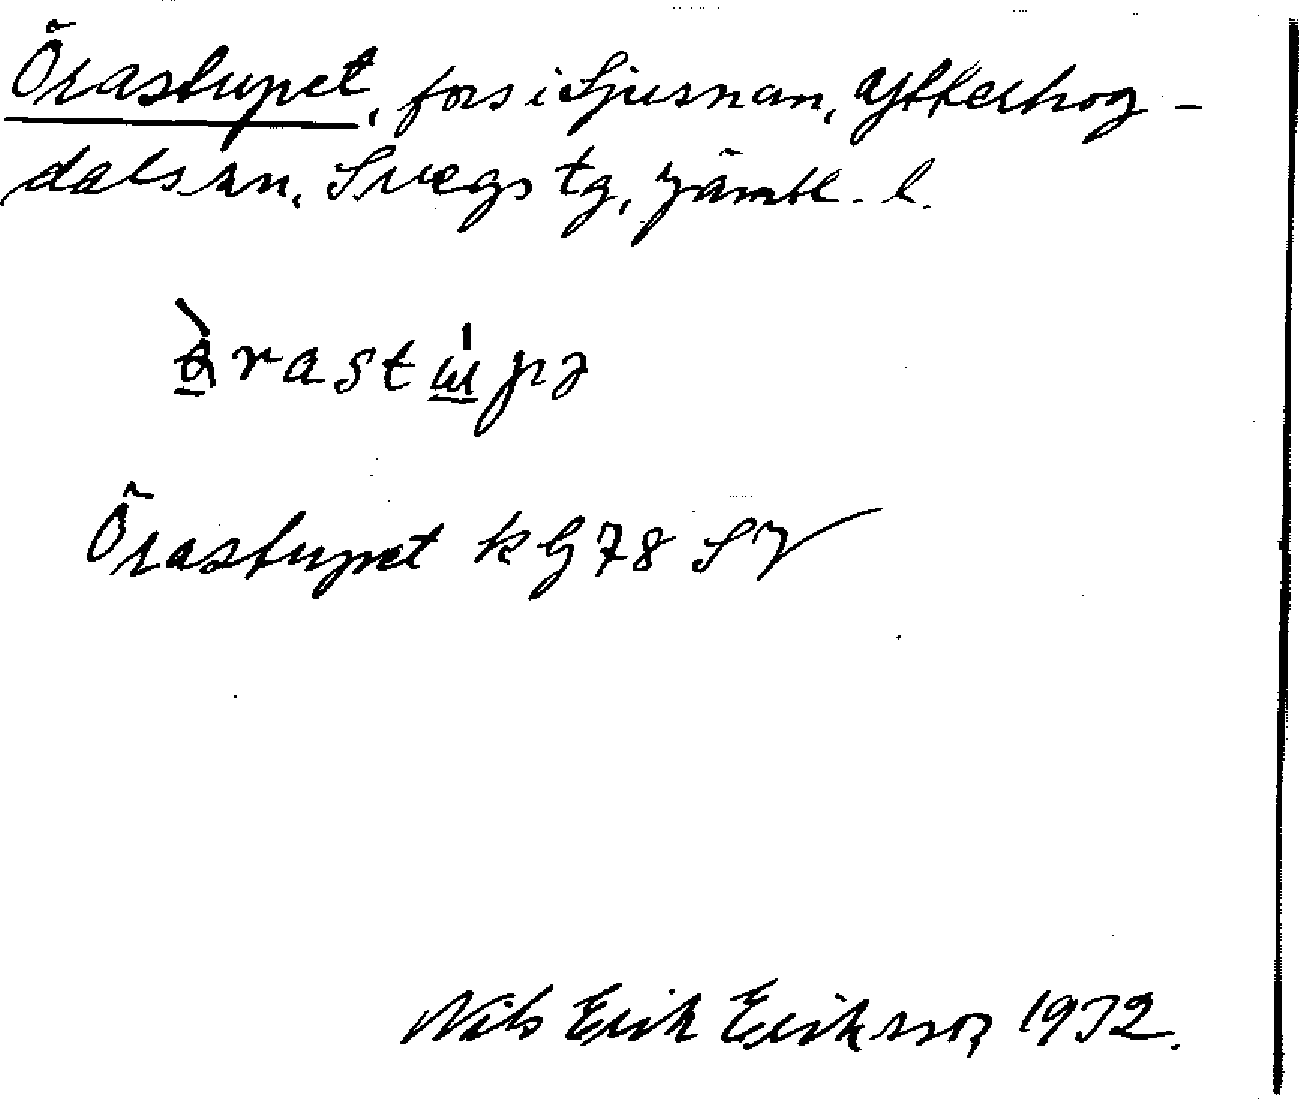 Örastupet, fors i Ljusnan, Ytterhog-
dals sn, Svegs tg, Jämtl. l.
Örastupet k bl 78 SV
Nils Erik Eriksson, 1932.